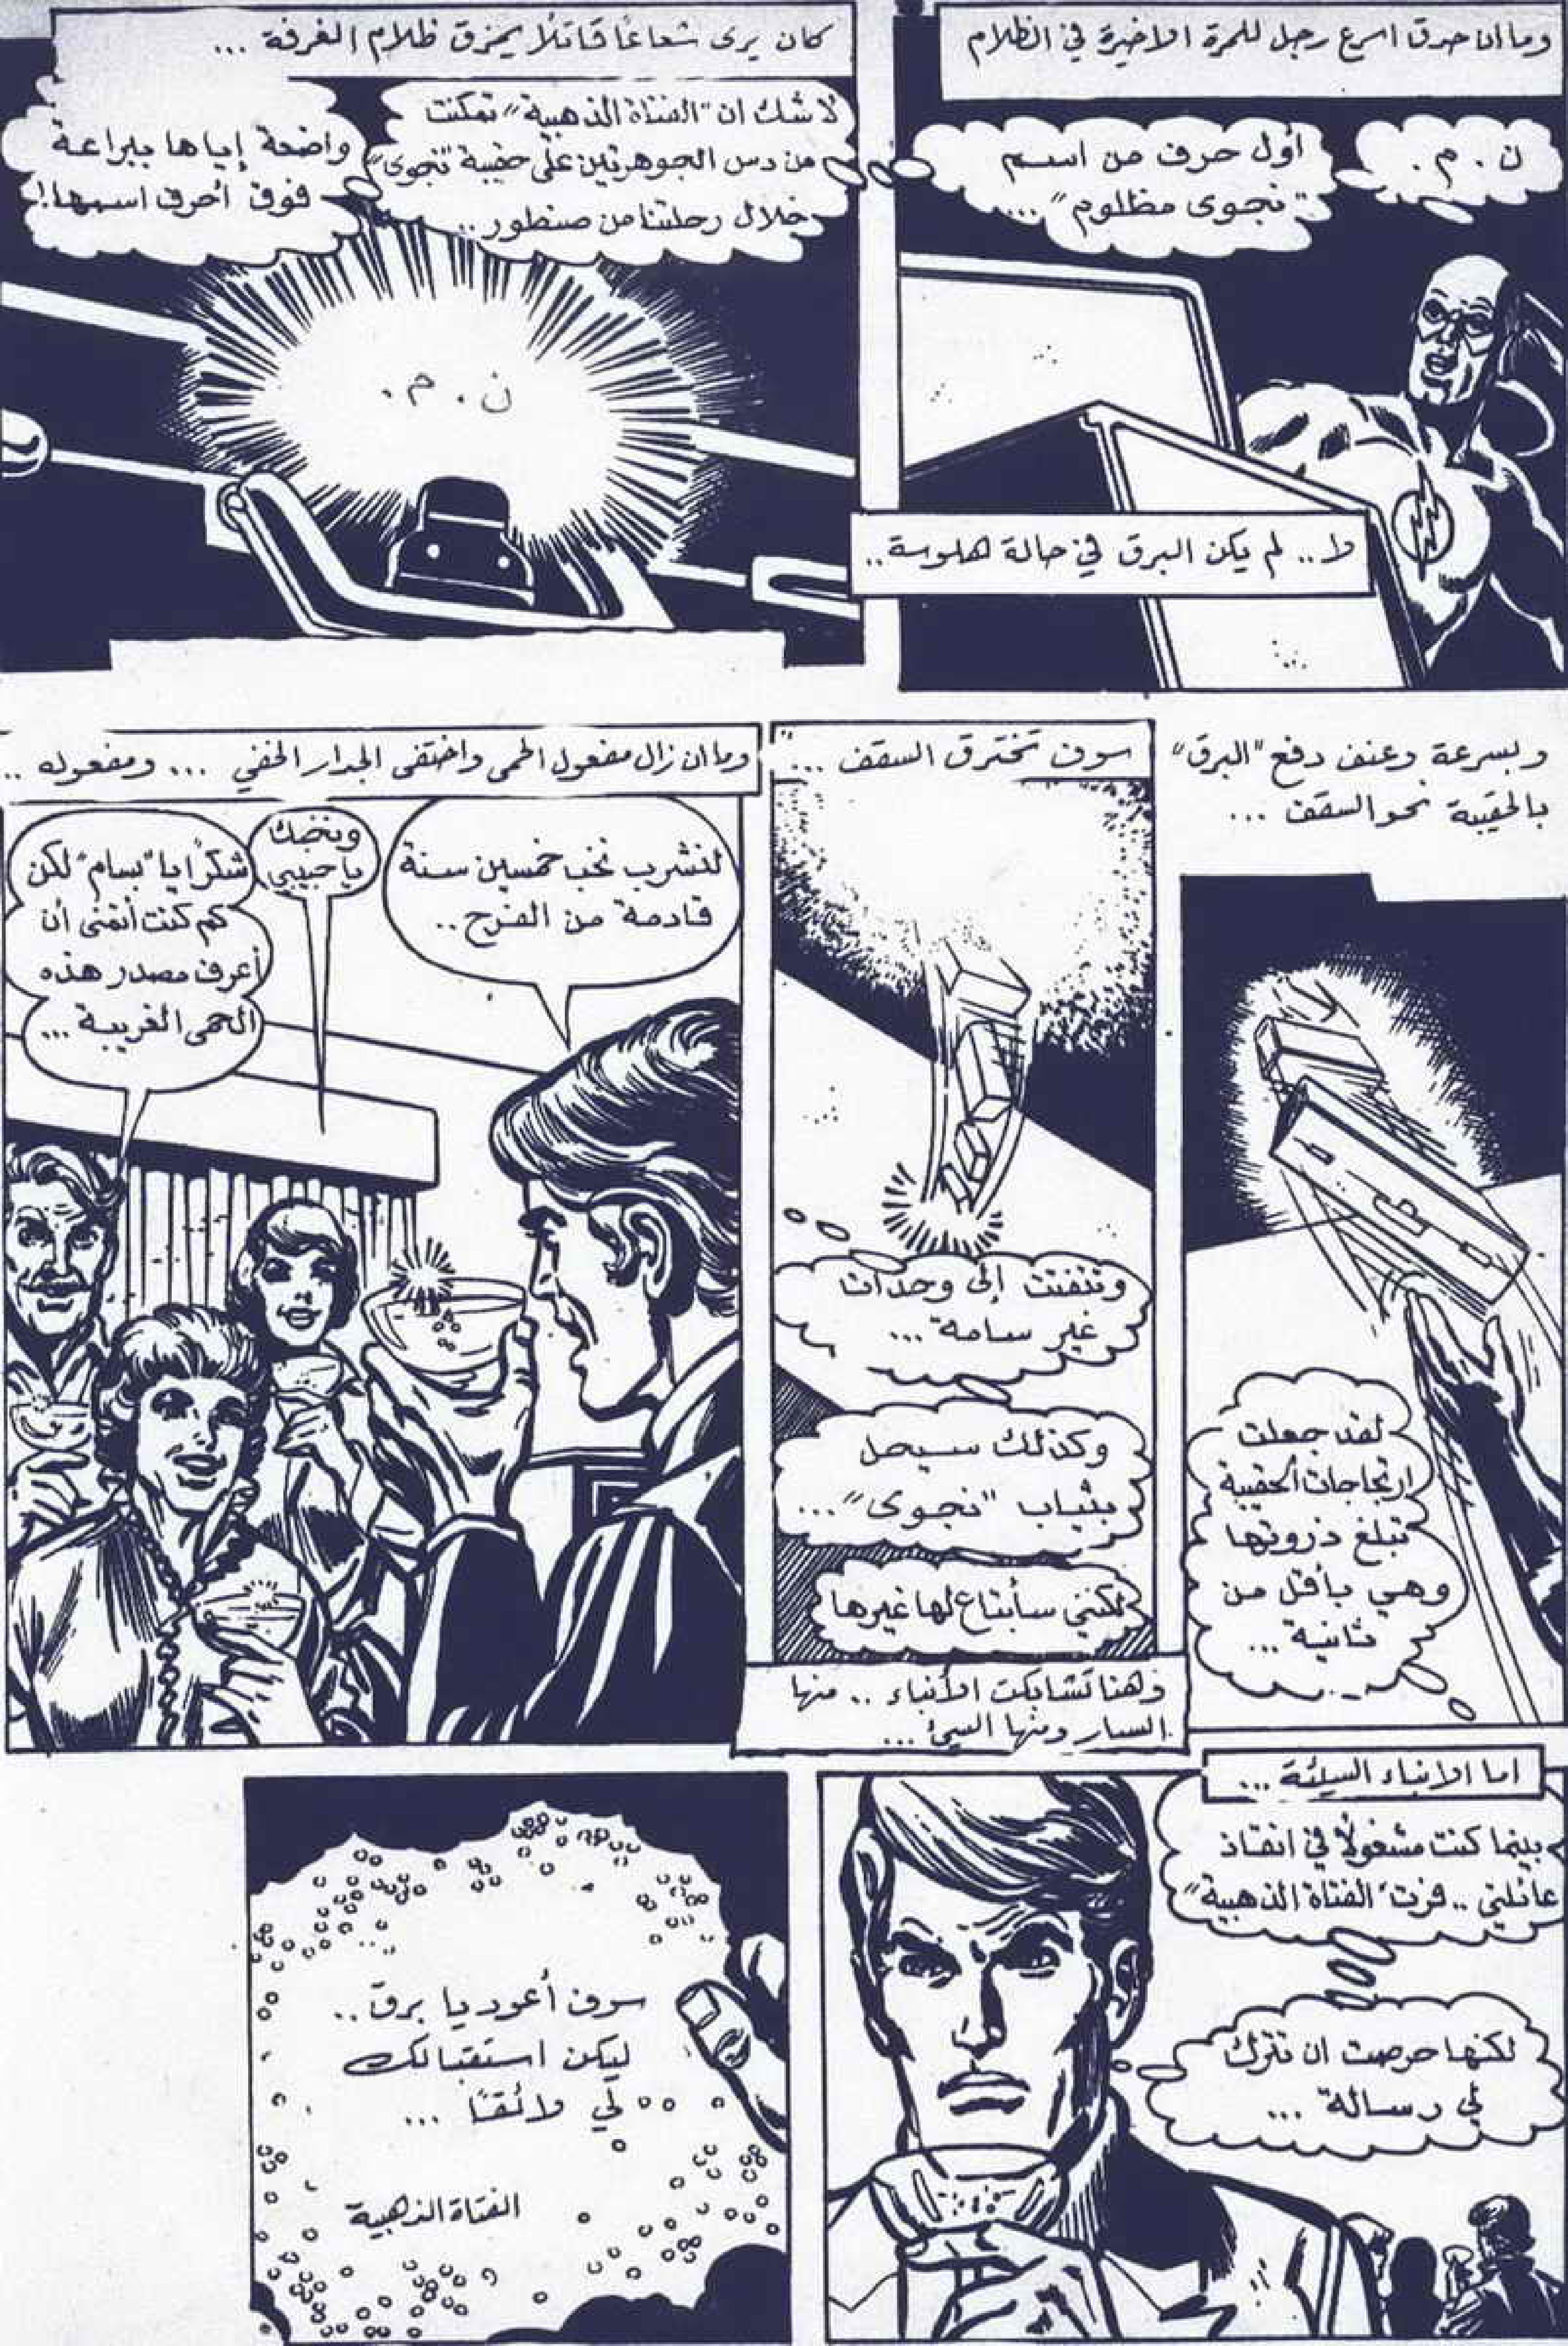 وما ان حدق اسرع رجل للمرة الاخيرة في الظلام
ن . م .
أول حرف من اسم
"نجوى مظلوم" ...
لا .. لم يكن البرق في حالة هلوسة ..
كان يرى شعاعًا قاتلًا يمزق ظلام الغرفة ...
لا شك ان "الفتاة الذهبية" تمكنت
من دس الجوهرتين على حقيبة "نجوى"
خلال رحلتنا من صنطور ..
واضعة إياها ببراعة
فوق أحرف اسمها!
ن . م .
وبسرعة وعنف دفع "البرق"
بالحقيبة نحو السقف ...
لقد جعلت
ارتجاجات الحقيبة
تبلغ ذروتها
وهي بأقل من
ثانية ...
سوف تخترق السقف ...
وتتفتت إلى وحدات
غير سامة ...
وكذلك سيحل
بثياب "نجوى" ...
لكنني سأبتاع لها غيرها
وهنا تشابكت الأنباء .. منها
السار ومنها السيئ ...
وما ان زال مفعول الحمى واختفى الجدار الخفي ... ومفعوله ..
لنشرب نخب خمسين سنة
قادمة من الفرح ..
وبنخبك
يا حبيبي
شكرًا يا "بسام" لكن
كم كنت أتمنى أن
أعرف مصدر هذه
الحمى الغريبة ...
اما الانباء السيئة ...
بينما كنت مشغولًا في انقاذ
عائلتي .. فرت "الفتاة الذهبية"
لكنها حرصت ان تترك
لي رسالة ...
سوف أعود يا برق ..
ليكن استقبالك
لي لائقًا ...
الفتاة الذهبية